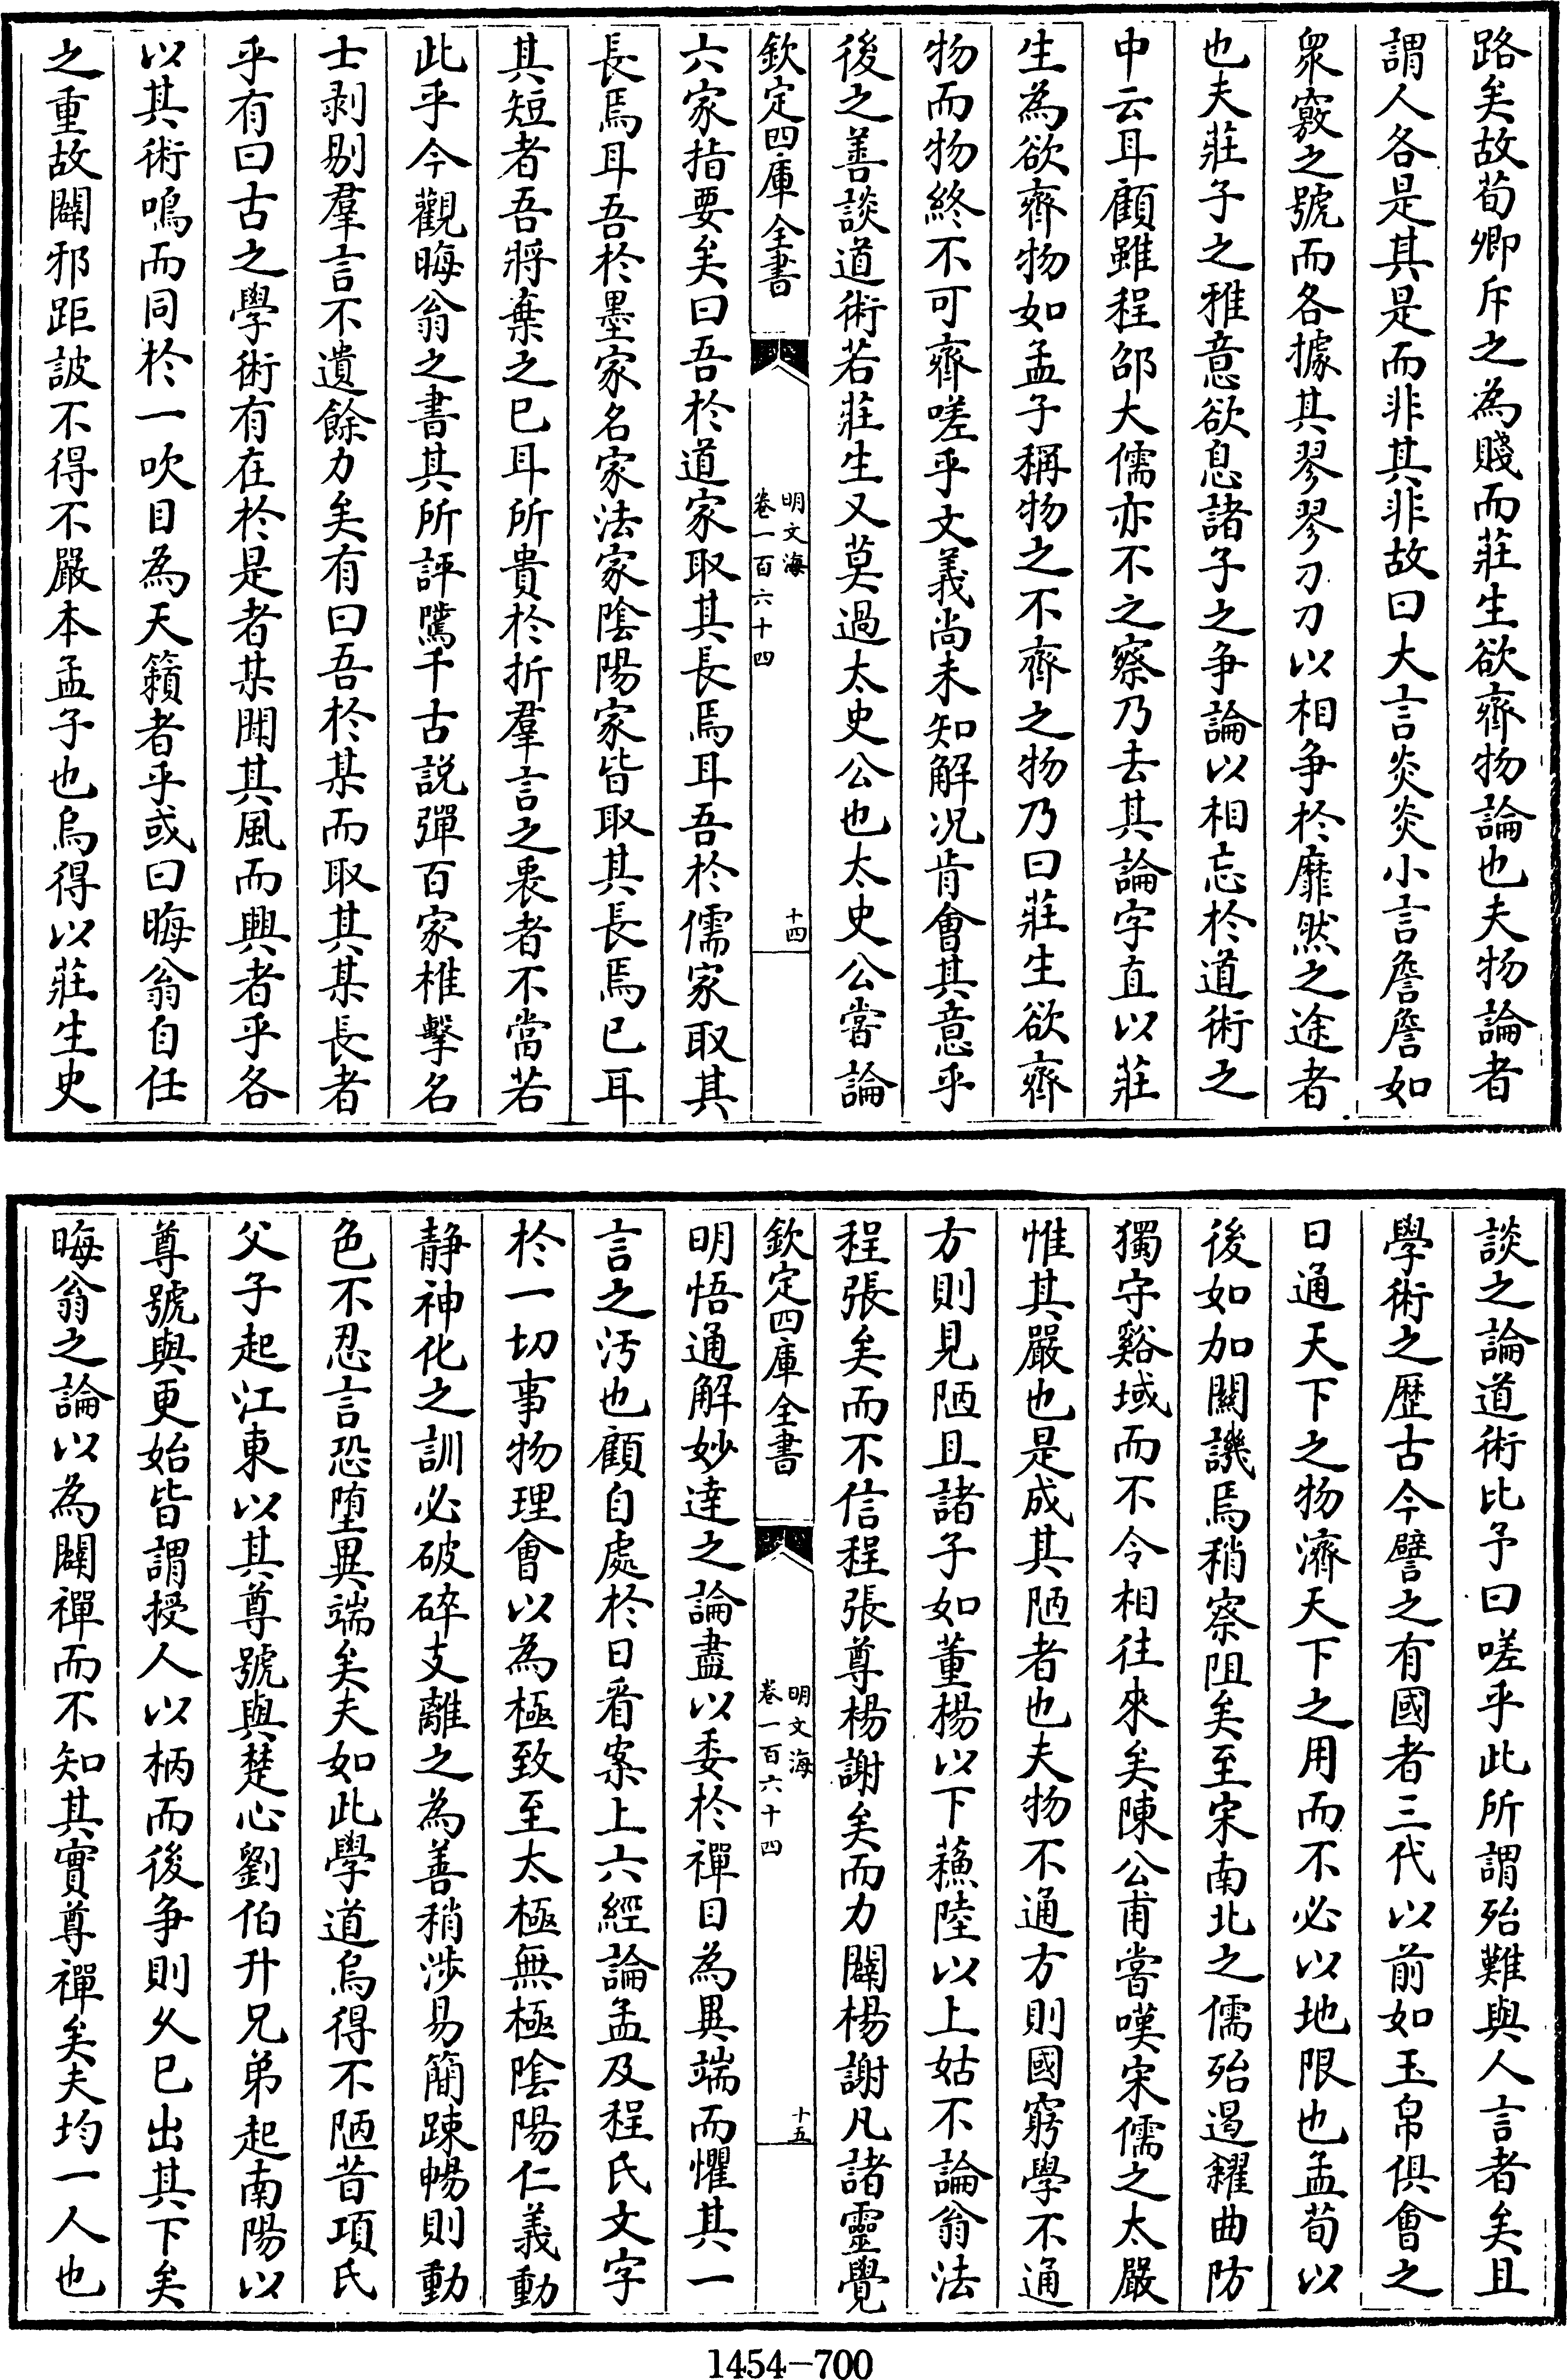 路矣故荀卿斥之為賤而莊生欲齊物論也夫物論者
謂人各是其是而非其非故曰大言炎炎小言詹詹如
衆竅之號而各據其翏翏刀刀以相爭於靡然之途者
也夫莊子之雅意欲息諸子之爭論以相忘於道術之
中云耳顧雖程邵大儒亦不之察乃去其論字直以莊
生為欲齊物如孟子稱物之不齊之物乃曰莊生欲齊
物而物終不可齊嗟乎文義尚未知解况肯會其意乎
後之善談道術若莊生又莫過太史公也太史公嘗論
欽定四庫全書
明文海
卷一百六十四
十四
六家指要矣曰吾於道家取其長焉耳吾於儒家取其
長焉耳吾於墨家名家法家陰陽家皆取其長焉已耳
其短者吾將棄之已耳所貴於折羣言之衷者不當若
此乎今觀晦翁之書其所評騭千古説彈百家椎擊名
士剥剔羣言不遺餘力矣有曰吾於某而取其某長者
乎有曰古之學術有在於是者某聞其風而興者乎各
以其術鳴而同於一吹目為天籟者乎或曰晦翁自任
之重故闢邪距詖不得不嚴本孟子也烏得以莊生史
談之論道術比予曰嗟乎此所謂殆難與人言者矣且
學術之歷古今譬之有國者三代以前如玉帛俱會之
日通天下之物濟天下之用而不必以地限也孟荀以
後如加關譏焉稍察阻矣至宋南北之儒殆遏糴曲防
獨守谿域而不令相往來矣陳公甫嘗嘆宋儒之太嚴
惟其嚴也是成其陋者也夫物不通方則國窮學不通
方則見陋且諸子如董楊以下蘓陸以上姑不論翁法
程張矣而不信程張尊楊謝矣而力闢楊謝凡諸靈覺
欽定四庫全書
明文海
卷一百六十四
十五
明悟通解妙達之論盡以委於禪目為異端而懼其一
言之汚也顧自處於日看案上六經論孟及程氏文字
於一切事物理會以為極致至太極無極陰陽仁義動
靜神化之訓必破碎支離之為善稍涉易簡疎暢則動
色不忍言恐堕異端矣夫如此學道烏得不陋昔項氏
父子起江東以其尊號與楚心劉伯升兄弟起南陽以
尊號與更始皆謂授人以柄而後爭則久已出其下矣
晦翁之論以為闢禪而不知其實尊禪矣夫均一人也
1454-700